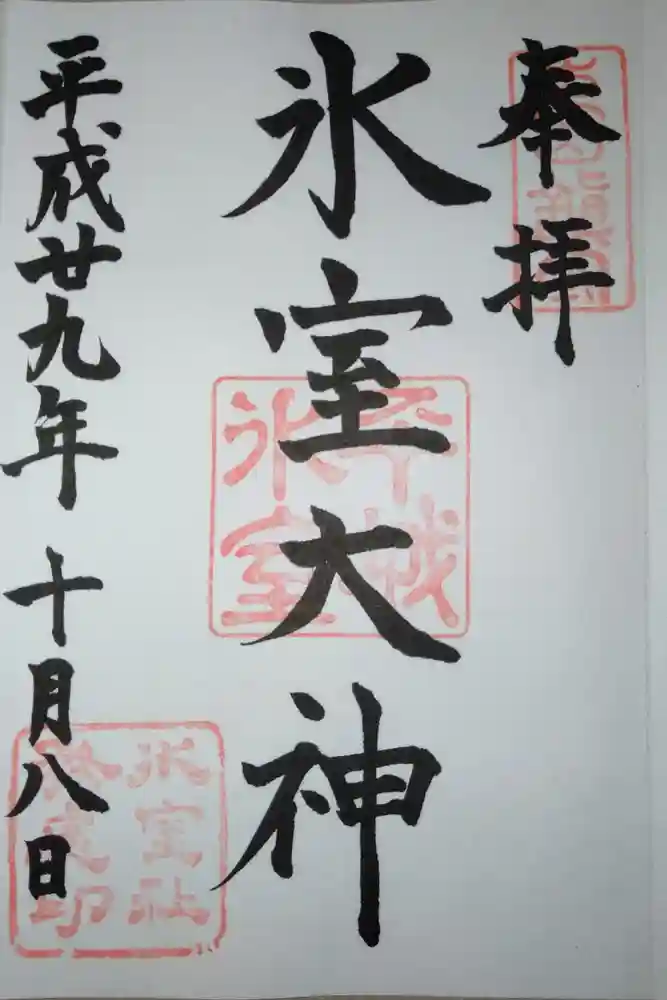 奉拝
氷室大神
平城
氷室
平成廿九年十月八日
氷室社